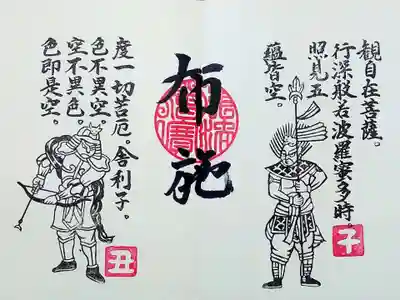 観自在菩薩。
行深般若波羅蜜多時
照見五
蘊皆空。
子
布施
度一切苦厄。舎利子。
色不異空。
空不異色。
色即是空。
丑